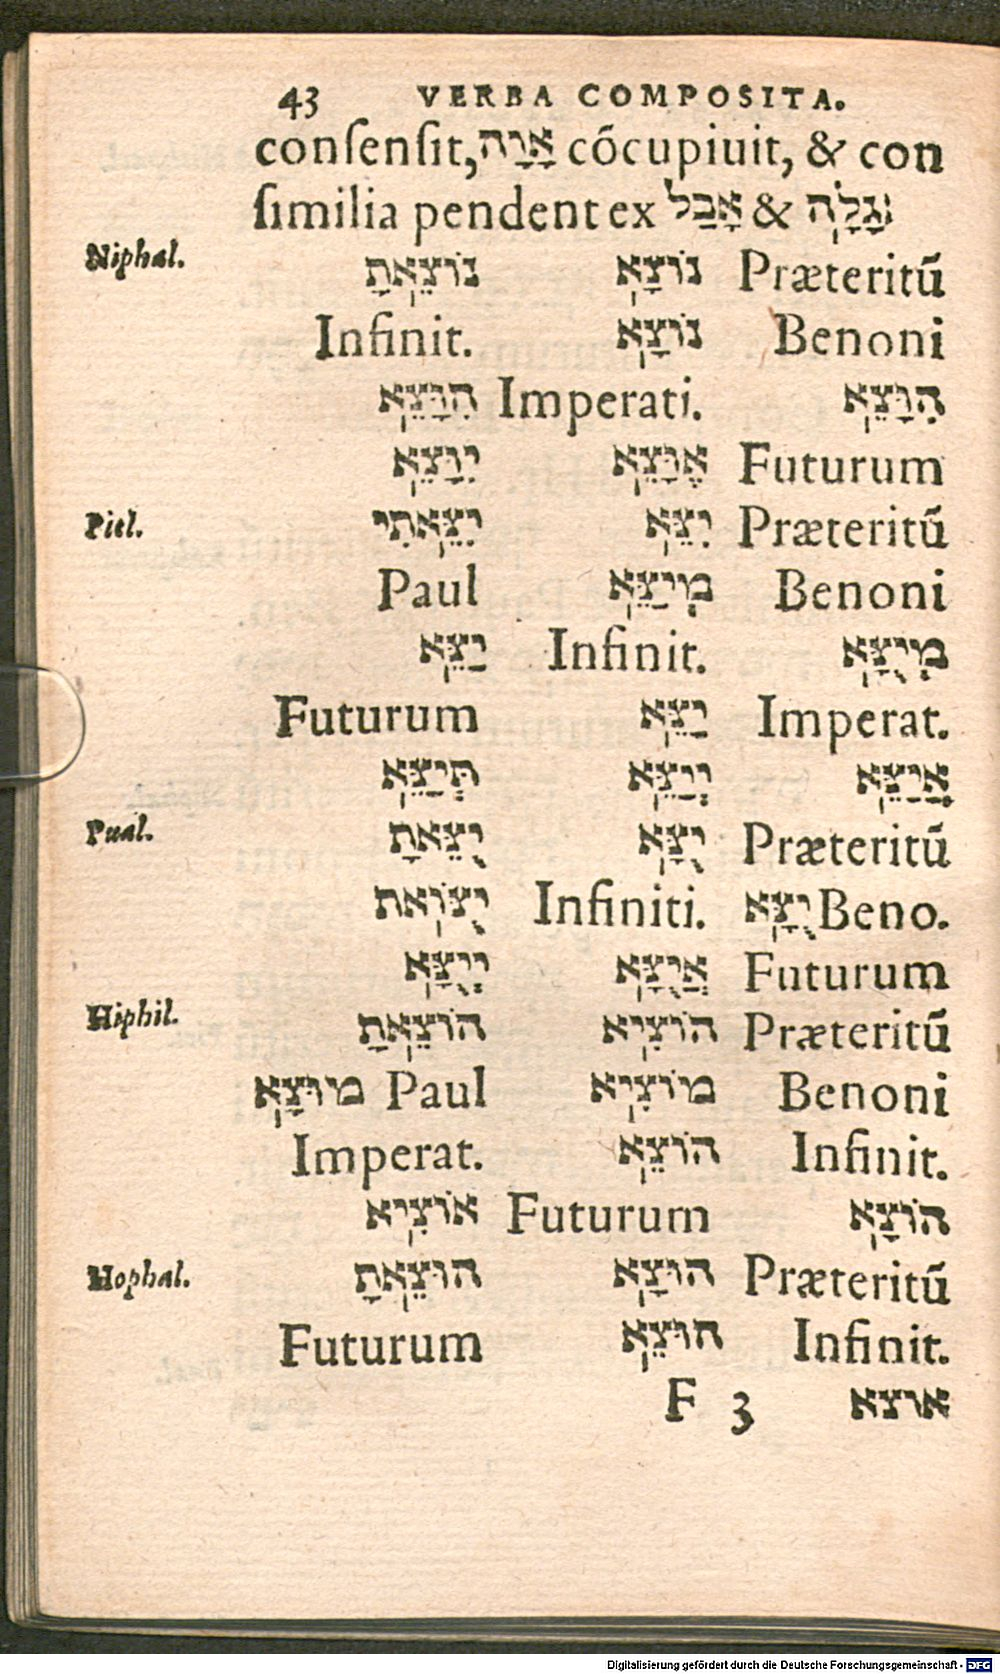 43 VERBA COMPOSITA.
conſenſit, אָוָה cõcupiuit, & con
ſimilia pendent ex אָכַל & גָלָה:
Niphal.
Præteritũ נוֹצָא נוֹצֵאתָ
Benoni נוֹצָא Infinit.
הִוָּצֵא Imperati. הִוָּצֵא
Futurum אֶוָּצֵא יִוָּצֵא
Piel.
Præteritũ יִצֵּא יִצֵּאתִי
Benoni מְיַצֵּא Paul
מְיֻצָּא Infinit. יַצֵּא
Imperat. יַצֵּא Futurum
אֲיַצֵּא יְיַצֵּא תְּיַצֵּא
Pual.
Præteritũ יֻצָּא יֻצֵּאתָ
Beno. יֻצָּא Infiniti. יֻצּוֹאת
Futurum אֲיֻצָּא יְיֻצָּא
Hiphil.
Præteritũ הוֹצִיא הוֹצֵאתָ
Benoni מוֹצִיא Paul מוּצָא
Infinit. הוֹצֵא Imperat.
הוֹצָא Futurum אוֹצִיא
Hophal.
Præteritũ הוּצָא הוּצֵאתָ
Infinit. הוּצֵא Futurum
F 3 אוצא
Digitalisierung gefördert durch die Deutsche Forschungsgemeinschaft - DFG